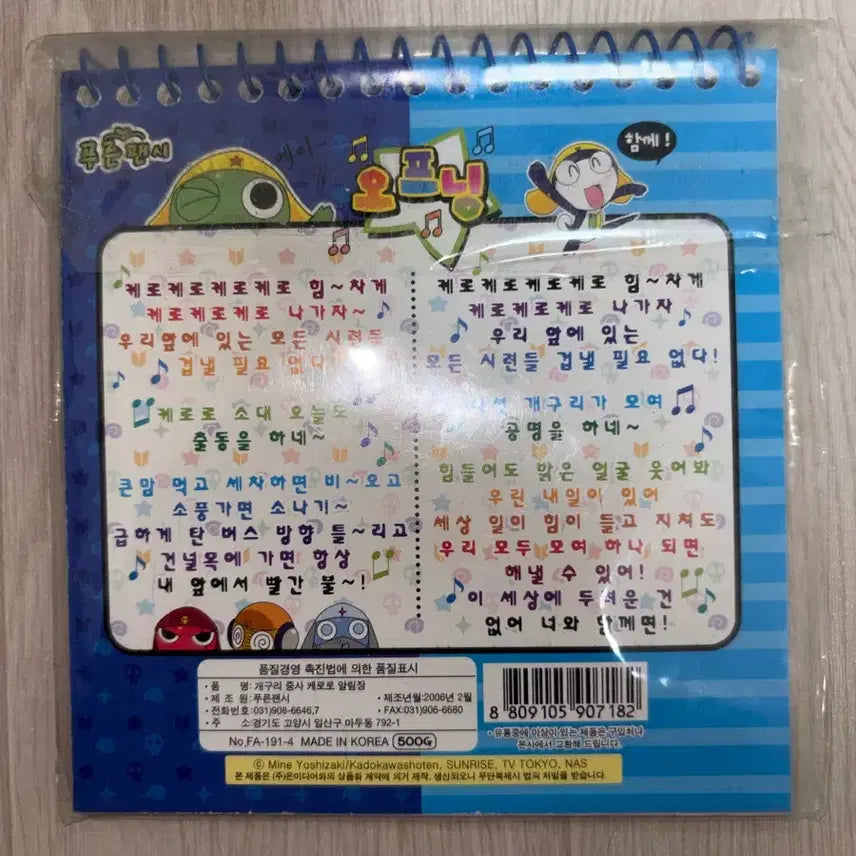 푸른팬시
헤이~
오프닝
함께!
케로케로케로케로 힘~차게
케로케로케로 나가자~
우리앞에 있는 모든 시련들
겁낼 필요 없다
케로로 소대 오늘도
출동을 하네~
큰맘 먹고 세차하면 비~오고
소풍가면 소나기~
급하게 탄 버스 방향 틀~리고
건널목에 가면 항상
내 앞에서 빨간 불~!
케로케로케로케로 힘~차게
케로케로케로 나가자
우리 앞에 있는
모든 시련들 겁낼 필요 없다!
개구리가 모여
공명을 하네~
힘들어도 밝은 얼굴 웃어봐
우린 내일이 있어
세상 일이 힘이 들고 지쳐도
우리 모두 모여 하나 되면
해낼 수 있어!
이 세상에 두려운 건
없어 너와 함께면!
품질경영 촉진법에 의한 품질표시
• 품 명:개구리 중사 케로로 알림장
• 제 조 원:푸른팬시 • 제조년월:2006년 2월
• 전화번호:031)908-6646,7 • FAX:031)906-6660
• 주 소:경기도 고양시 일산구 마두동 792-1
No,FA-191-4 MADE IN KOREA 500G
8 809105 907182
• 유통중에 이상이 있는 제품은 구입처나
본사에서 교환해 드립니다.
© Mine Yoshizaki/Kadokawashoten, SUNRISE, TV TOKYO, NAS
본 제품은 (주)온미디어와의 상품화 계약에 의거 제작, 생산되오니 무단복제시 법의 처벌을 받습니다.